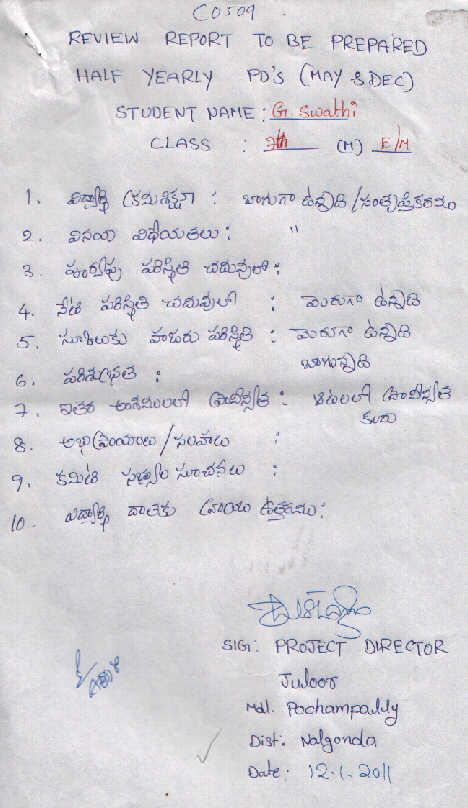 C0509
REVIEW REPORT TO BE PREPARED
HALF YEARLY PD'S (MAY & DEC)
STUDENT NAME: G. Swathi
CLASS : 7th (M) E/M
1. విద్యార్థి క్రమశిక్షణ : బాగుగా ఉన్నది / సంతృప్తికరము
2. వినయ విధేయతలు : "
3. పూర్వపు పరిస్థితి చదువులో :
4. నేటి పరిస్థితి చదువులో : మెరుగా ఉన్నది
5. స్కూలుకు హాజరు పరిస్థితి : మెరుగా ఉన్నది
6. పరిశుభ్రత : బాగున్నది
7. ఇతర అంశములలో ప్రావీణ్యత : ఆటలలో ప్రావీణ్యత కలదు
8. అభిప్రాయాలు / సలహాలు :
9. కమిటి సభ్యుల సూచనలు :
10. విద్యార్థి దాతకు వ్రాయు ఉత్తరము :
SIG: PROJECT DIRECTOR
Juloor
Mdl. Pochampally
Dist: Nalgonda
Date: 12-1-2011